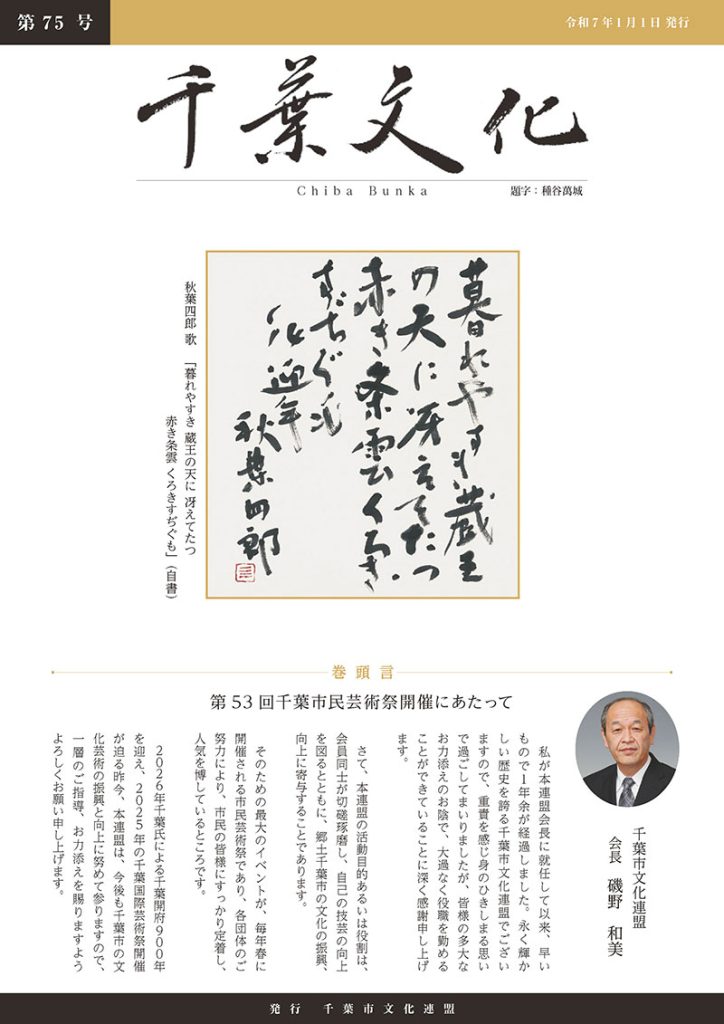 第75号
令和7年1月1日 発行
千葉文化
Chiba Bunka
題字：種谷萬城
暮れやすき蔵王
の天に冴えてたつ
赤き条雲くろき
すぢぐも
迎年
秋葉四郎
秋葉四郎 歌 「暮れやすき 蔵王の天に 冴えてたつ
赤き条雲 くろきすぢぐも」（自書）
巻頭言
第53回千葉市民芸術祭開催にあたって
千葉市文化連盟
会長 磯野 和美
私が本連盟会長に就任して以来、早い
もので1年余が経過しました。永く輝か
しい歴史を誇る千葉市文化連盟でござい
ますので、重責を感じ身のひきしまる思い
で過ごしてまいりましたが、皆様の多大な
お力添えのお陰で、大過なく役職を勤める
ことができていることに深く感謝申し上げ
ます。
さて、本連盟の活動目的あるいは役割は、
会員同士が切磋琢磨し、自己の技芸の向上
を図るとともに、郷土千葉市の文化の振興、
向上に寄与することであります。
そのための最大のイベントが、毎年春に
開催される市民芸術祭であり、各団体のご
努力により、市民の皆様にすっかり定着し、
人気を博しているところです。
2026年千葉氏による千葉開府900年
を迎え、2025年の千葉国際芸術祭開催
が迫る昨今、本連盟は、今後も千葉市の文
化芸術の振興と向上に努めて参りますので、
一層のご指導、お力添えを賜りますよう
よろしくお願い申し上げます。
発行 千葉市文化連盟